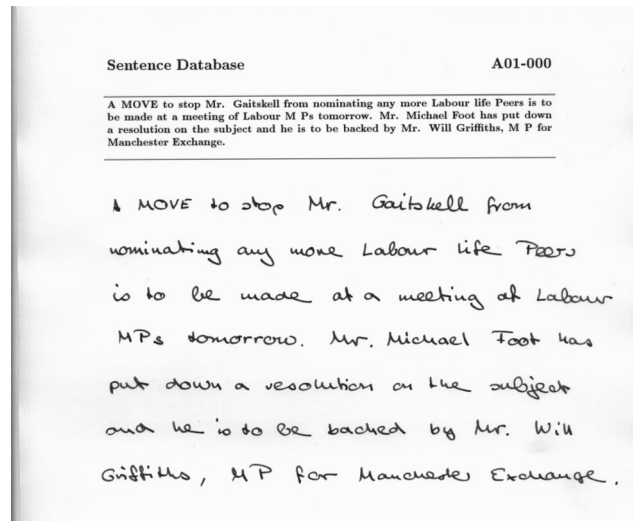 Sentence Database A01-000
A MOVE to stop Mr. Gaitskell from nominating any more Labour life Peers is to
be made at a meeting of Labour M Ps tomorrow. Mr. Michael Foot has put down
a resolution on the subject and he is to be backed by Mr. Will Griffiths, M P for
Manchester Exchange.
A MOVE to stop Mr. Gaitskell from
nominating any more Labour life Peers
is to be made at a meeting of Labour
MPs tomorrow. Mr. Michael Foot has
put down a resolution on the subject
and he is to be backed by Mr. Will
Griffiths, MP for Manchester Exchange.